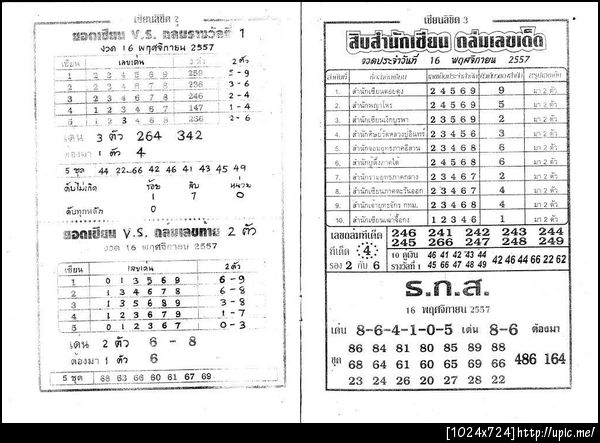 เซียนลิขิต 2
ยอดเซียน V.S. ถล่มรางวัลที่ 1
งวด 16 พฤศจิกายน 2557
เซียน เลขเด่น 3 ตัว 2 ตัว
1 2 3 4 5 6 9 259 5-9
2 3-6
3 2-4
4 1 2 3 4 6 7 147 1-4
5 236 2-6
เด่น 3 ตัว 264 342
ต้องมา 1 ตัว 4
5 ชุด 44 22 66 42 46 41 43 45 49
ดับไม่เกิด ร้อย สิบ หน่วย
1 7 0
ดับทุกหลัก 0
ยอดเซียน V.S. ถล่มเลขท้าย 2 ตัว
งวด 16 พฤศจิกายน 2557
เซียน เลขเด่น 2 ตัว
1 0 1 3 5 6 9 6-9
2 1 3 4 6 7 8 6-8
3 1 3 4 5 6 8 3-8
4 0 1 3 4 7 9 1-7
5 0 1 2 3 6 7 0-3
เด่น 2 ตัว 6 - 8
ต้องมา 1 ตัว 6
5 ชุด 68 63 66 60 61 67 69
เซียนลิขิต 3
สิบสำนักเซียน ถล่มเลขเด็ด
งวดประจำวันที่ 16 พฤศจิกายน 2557
1. สำนักเซียนดอยตุง 2 4 5 6 9 9 มา 2 ตัว
2. สำนักพญาโหร 2 4 5 6 9 5 มา 2 ตัว
3. สำนักเซียนเงินบูรพา 2 3 4 6 8 2 มา 2 ตัว
4. สำนักศิษย์วัดหลวงปู่อินทร์ 2 3 4 6 8 3 มา 2 ตัว
5. สำนักจอมยุทธภาคอีสาน 2 3 4 6 8 8 มา 2 ตัว
6. สำนักปู่ตึ๋งภาคใต้ 2 4 5 6 8 6 มา 2 ตัว
7. สำนักรวมยุทธภาคกลาง 2 3 4 6 8 2 มา 2 ตัว
8. สำนักเซียนภาคตะวันออก 2 3 4 6 8 4 มา 2 ตัว
9. สำนักเจ้ายุทธจักร กทม. 2 3 4 6 7 0 มา 2 ตัว
10. สำนักเซียนเฒ่าจี้อกง 1 2 3 4 6 1 มา 2 ตัว
เลขถล่มทีเด็ด 246 241 242 243 244
245 266 247 248 249
ทีเด็ด 4 10 คู่เงิน 46 41 42 43 44
รอง 2 กับ 6 รางวัลที่ 1 45 66 47 48 49
42 46 44 66 22 62
ธ.ก.ส.
16 พฤศจิกายน 2557
เด่น 8-6-4-1-0-5 เด่น 8-6 ต้องมา
ชุด 86 84 81 80 85 89 88
68 64 61 60 65 66 44
23 24 26 27 28 22
486 164
[1024x724]http://upic.me/